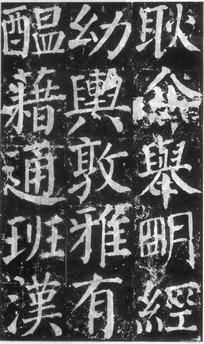 耿介舉朙經
幼輿敦雅有
醞藉通班漢